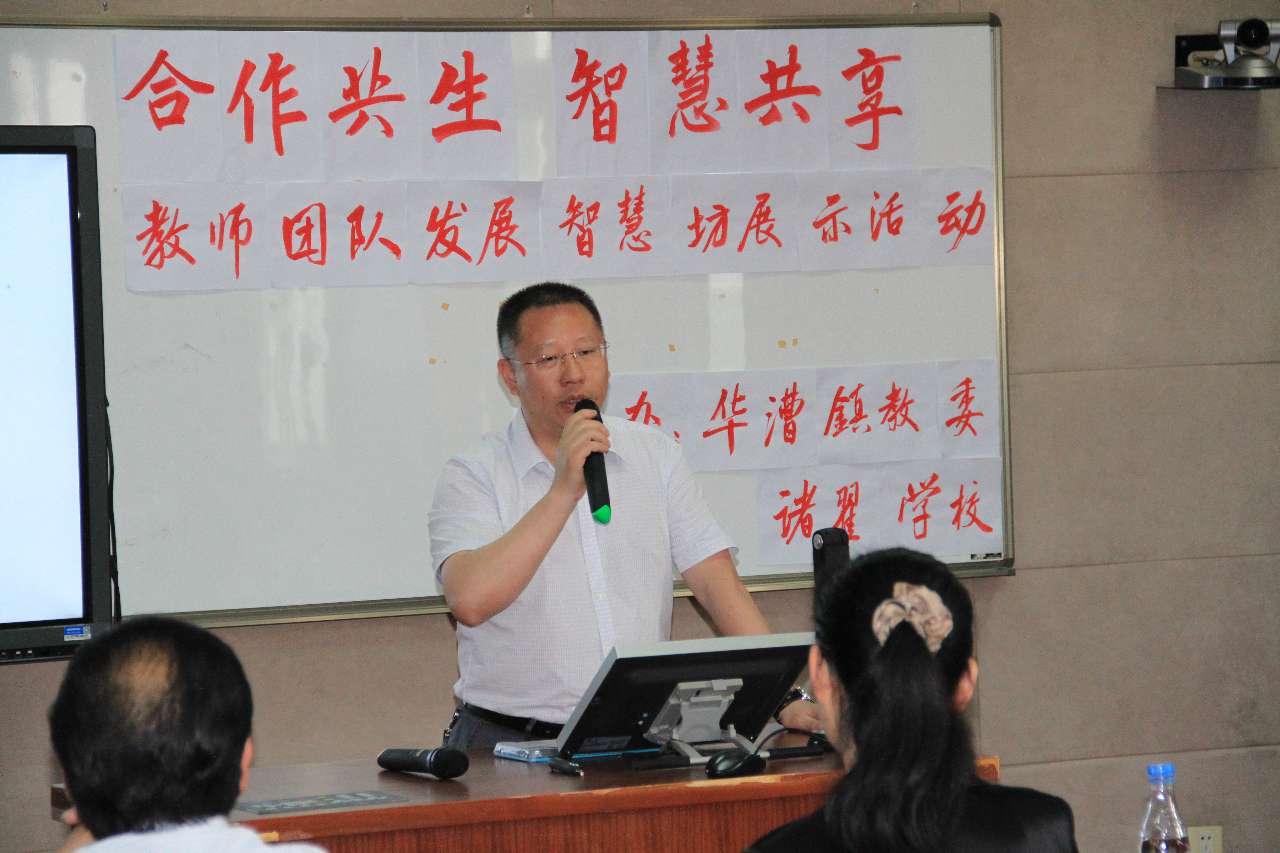 合作共生 智慧共享
教师团队发展智慧坊展示活动
办：华漕鎮教委
诸翟学校